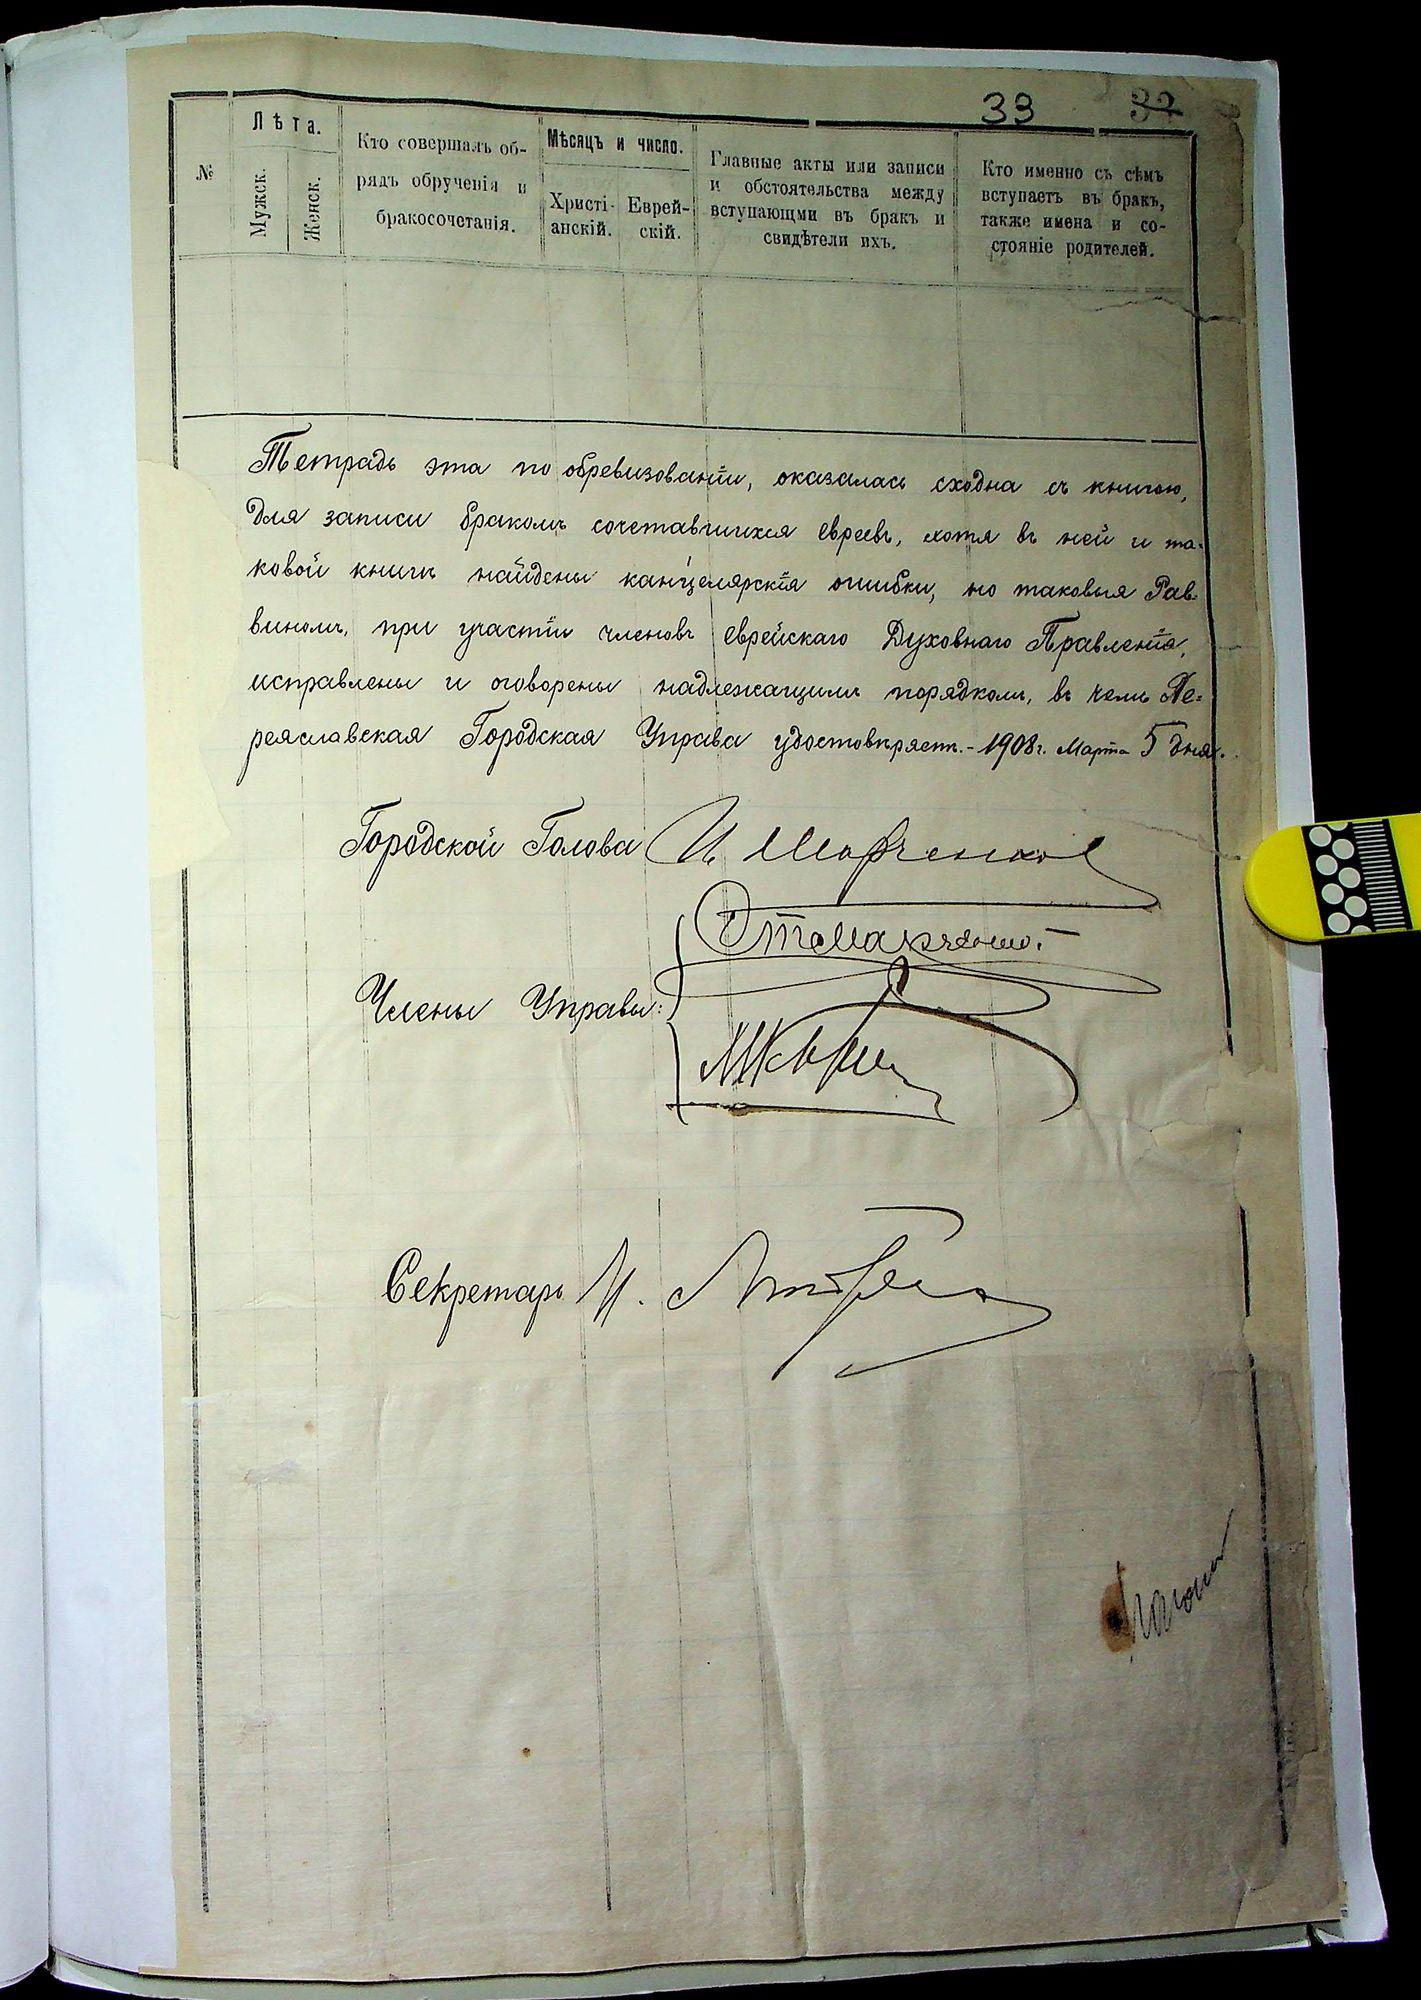 33 37
№
Лѣта.
Мужск.
Женск.
Кто совершалъ об-
рядъ обрученія и
бракосочетанія.
Мѣсяцъ и число.
Христі-
анскій.
Еврей-
скій.
Главные акты или записи
и обстоятельства между
вступающми въ бракъ и
свидѣтели ихъ.
Кто именно съ сѣмъ
вступаетъ въ бракъ,
также имена и со-
стояніе родителей.
Тетрадь эта по обревизованіи, оказалась сходна съ книгою,
для записи бракомъ сочетавшихся евреевъ, хотя въ ней и та-
ковой книгѣ найдены канцелярскія ошибки, но таковыя Рав-
виномъ, при участіи членовъ еврейскаго Духовнаго Правленія,
исправлены и оговорены надлежащимъ порядкомъ, въ чемъ Пе-
реяславская Городская Управа удостовѣряетъ.- 1908 г. Марта 5 дня.
Городской Голова И. Марченко
Члены Управы:
Секретарь И.